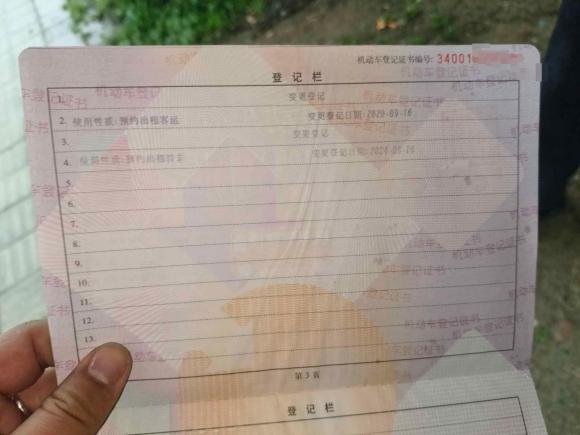 机动车登记证书编号: 34001
登记栏
1. 变更登记
2. 使用性质:预约出租客运 变更登记日期:2020-09-16
3. 变更登记
4. 使用性质:预约出租转非 变更登记日期:
5.
6.
7.
8.
9.
10.
11.
12.
13.
第3页
登记栏
机动车登记证书